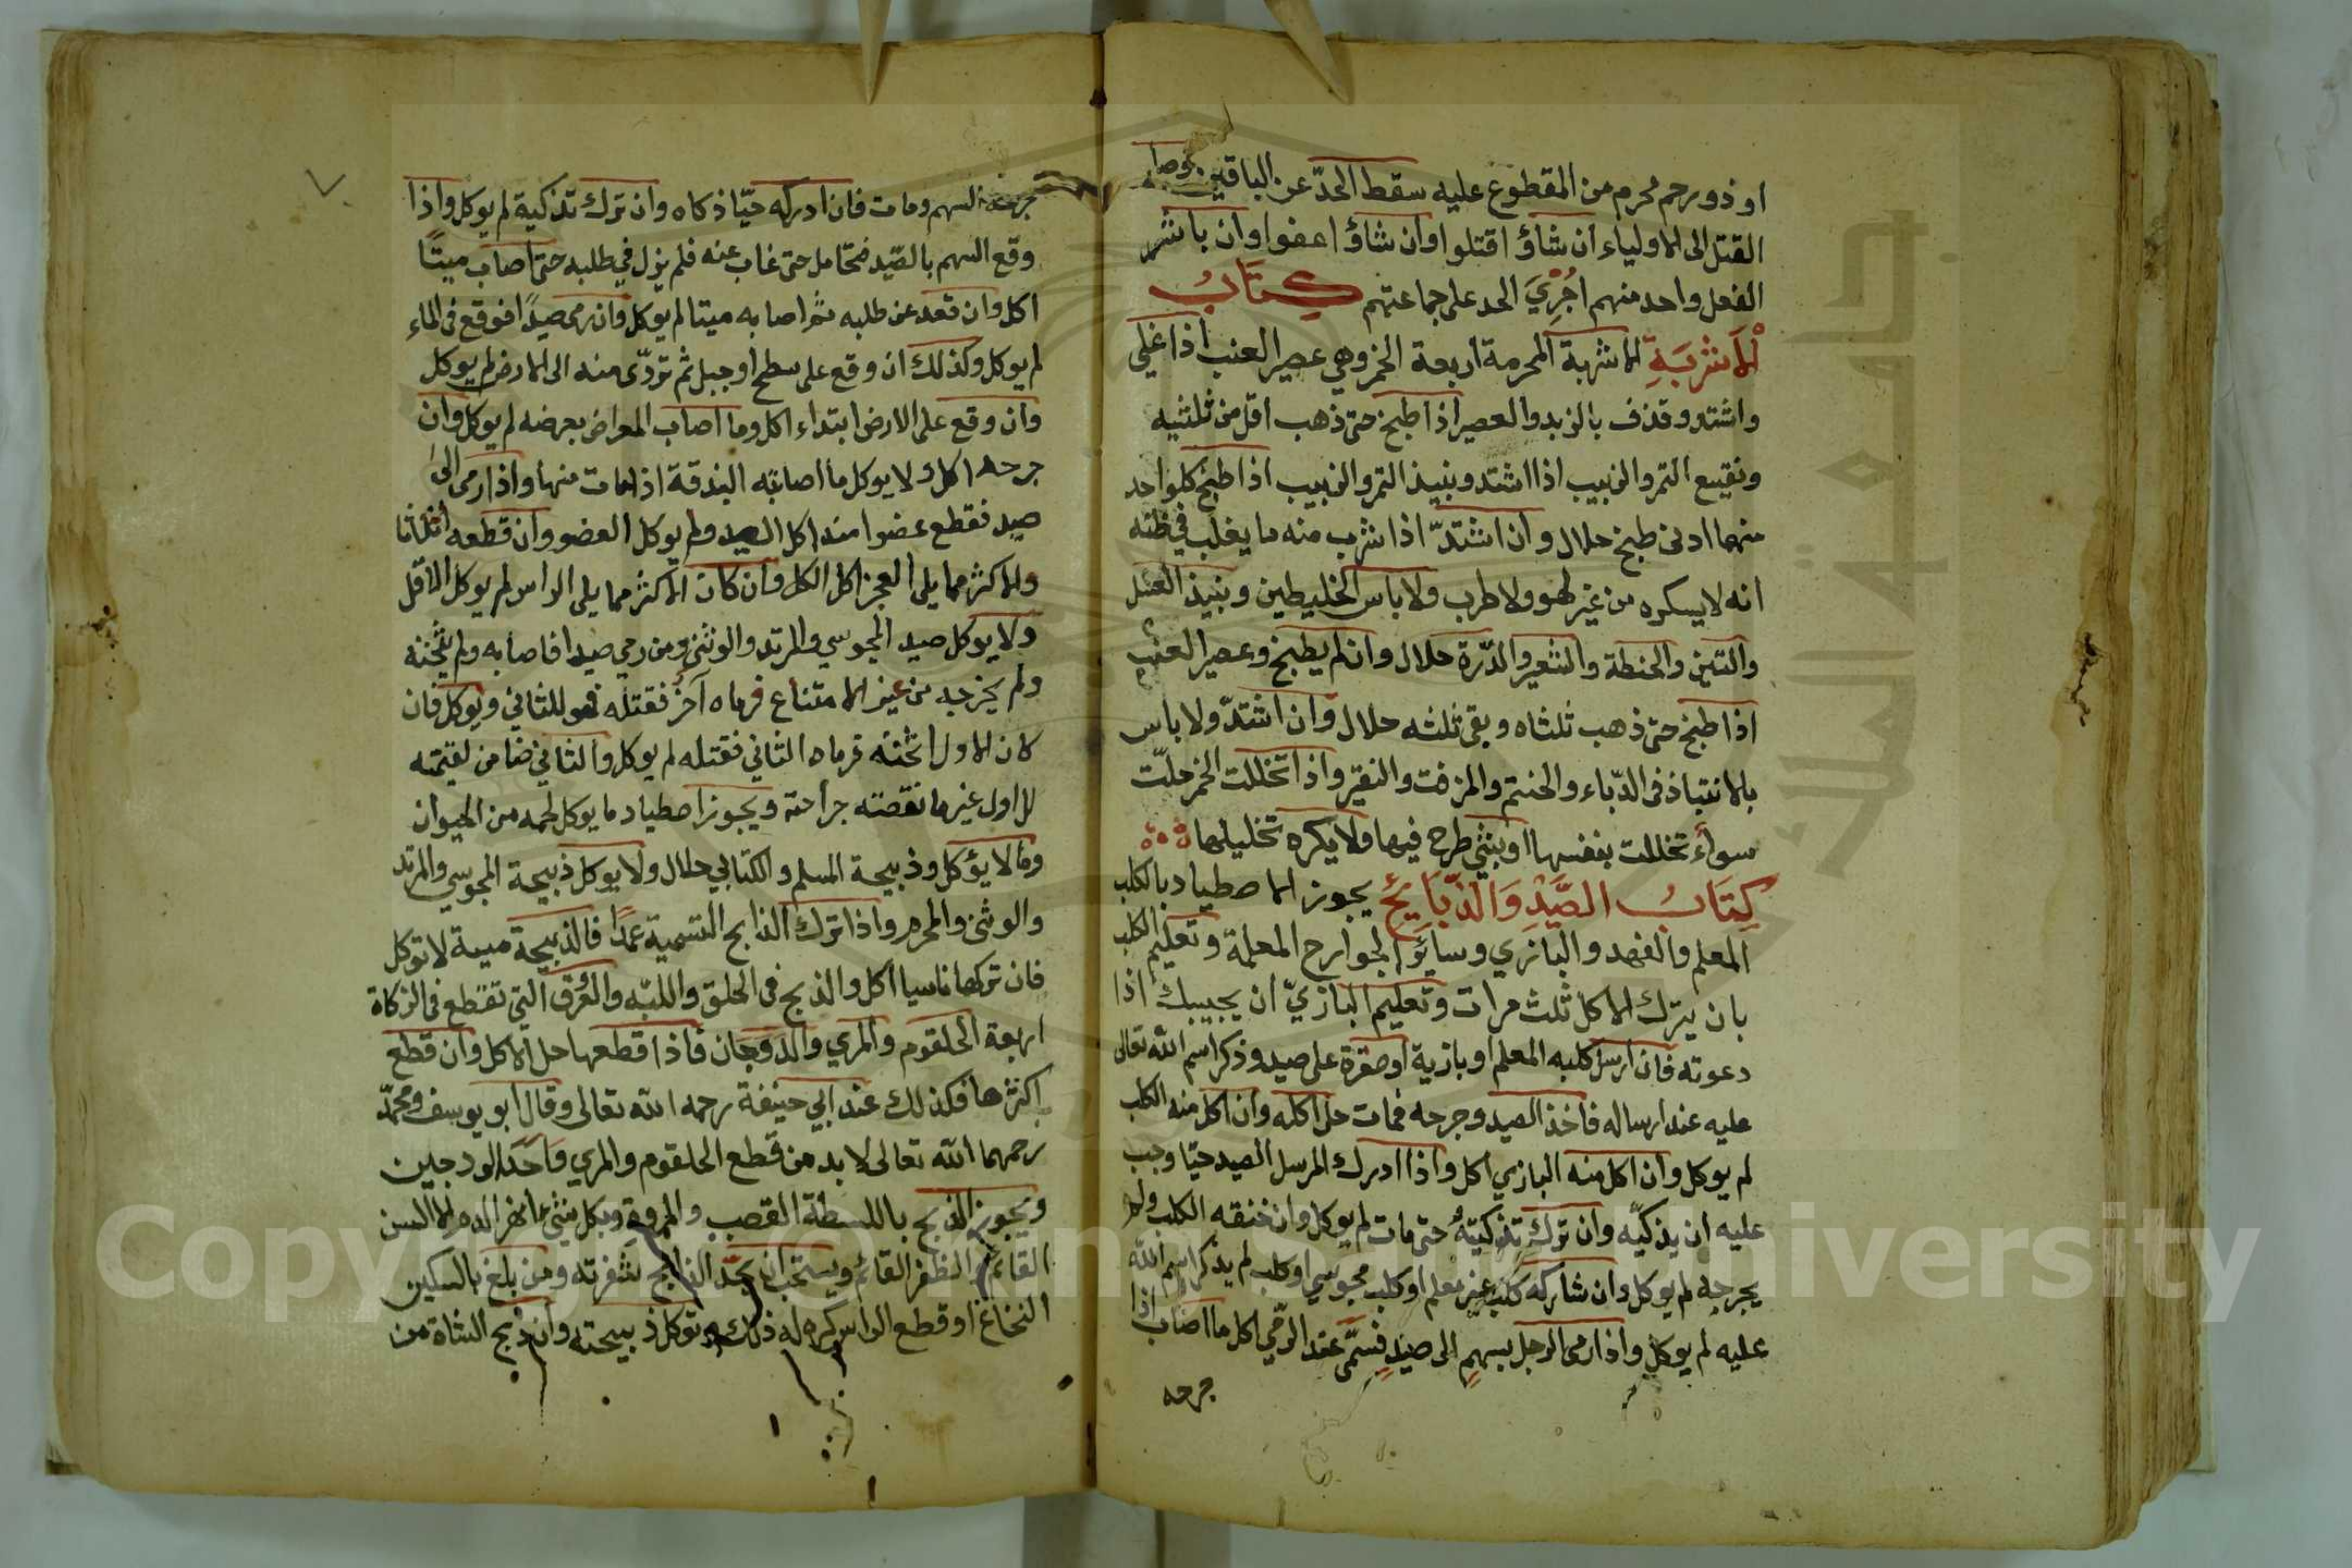 او ذو رحم محرم من المقطوع عليه سقط الحدّ عن الباقين وصار
القتل الى الاولياء ان شاؤ اقتلوا وان شاؤ اعفوا وان باشر
الفعل واحد منهم اجُرِيَ الحد على جماعتهم كتاب
الاشربة الاشربة المحرمة اربعة الخمر وهي عصير العنب اذا غلي
واشتد وقذف بالزبد والعصير اذا طبخ حتى ذهب اقل من ثلثيه
ونقيع التمر والزبيب اذا اشتد ونبيذ التمر والزبيب اذا طبخ كلواحد
منهما ادنى طبخ حلال وان اشتدّ اذا شرب منه ما يغلب في ظنه
انه لا يسكره من غير لهو ولا طرب ولا باس الخليطين ونبيذ العسل
والتين والحنطة والشعير والذّرة حلال وان لم يطبخ وعصير العنب
اذا طبخ حتى ذهب ثلثاه وبقى ثلثه حلال وان اشتدّ ولا باس
بالانتباذ فى الدّباء والحنتم والمزفت والنقير واذا تخللت الخمر حلّت
سواء تخللت بنفسها اوبشي طرح فيها ولا يكره تخليلها
كِتَابُ الصَّيْدِ وَالذَّبَايِح يجوز الاصطياد بالكلب
المعلم والفهد والبازي وسائر الجوارح المعلمة وتعليم الكلب
بان يترك الاكل ثلث مرات وتعليم البازيّ ان يجيبك اذا
دعوته فان ارسل كلبه المعلم او بازية او صقرة على صيد وذكر اسم الله تعالى
عليه عند ارساله فاخذ الصيد وجرحه فمات حل اكله وان اكل منه الكلب
لم يوكل وان اكل منه البازي اكل واذا ادرك المرسل الصيد حيّا وجب
عليه ان يذكيّه وان ترك تذكيتهُ حتى مات لم يوكل وان خنقه الكلب ولم
يجرحه لم يوكل وان شاركه كلب غير معلم او كلب مجوسي او كلب لم يذكر اسم الله
عليه لم يوكل واذا رمى الرجل بسهمٍ الى صيدٍ فسمّى عند الرّمي اكل ما اصاب اذا
جرحه
جرحه السهم ومات فان ادركه حيّا ذكاه وان ترك تذكية لم يوكل واذا
وقع السهم بالصّيد فتحامل حتى غاب عنه فلم يزل في طلبه حتى اصاب ميتًا
اكل وان قعد عن طلبه ثم اصابه ميتا لم يوكل وان رمى صيدًا فوقع فى الماء
لم يوكل وكذلك ان وقع على سطح او جبل ثم تردّى منه الى الارض لم يوكل
وان وقع على الارض ابتداء اكل وما اصاب المعراض بعرضه لم يوكل وان
جرحه اكل ولا يوكل ما اصابته البندقة اذا مات منها واذا رمى الى
صيد فقطع عضوا منه اكل الصيد ولم يوكل العضو وان قطعه اثلاثا
والاكثر مما يلى العجز اكل الكل وان كان الاكثر مما يلى الراس لم يوكل الاقل
ولا يوكل صيد المجوسي والمرتد والوثني ومن رمي صيدا فاصابه ولم يثخنه
ولم يخرجه من غير الامتناع فرماه آخر فقتله فهو للثاني ويوكل فان
كان الاول اثخنه فرماه الثاني فقتله لم يوكل والثاني ضامن لقيمته
للاول غير ما نقصته جراحته ويجوز اصطياد ما يوكل لحمه من الحيوان
وما لا يؤكل وذبيحة المسلم والكتابي حلال ولا يوكل ذبيحة المجوسي والمرتد
والوثنى والمحرم واذا ترك الذابح التسمية عمدًا فالذبيحة ميتة لا توكل
فان تركها ناسيا اكل والذبح فى الحلق واللبّه والعُرق التي تقطع فى الزكاة
اربعة الحلقوم والمري والدوجان فاذا قطعها حل الاكل وان قطع
اكثرها فكذلك عند ابي حنيفة رحمه الله تعالى وقال ابو يوسف ومحمّد
رحمهما الله تعالى لا بد من قطع الحلقوم والمري واحد الودجين
ويجوز الذبح بالليطة القصب والمروة وبكل شئ انهر الدم الا السن
القائم والظفر القائم ويستحب ان يحدّ الذابح شفرته ومن بلغ بالسكين
النخاع او قطع الراس كره له ذلك وتوكل ذبيحته وان ذبح الشاة من
Copyright © King Saud University
جامعة الملك